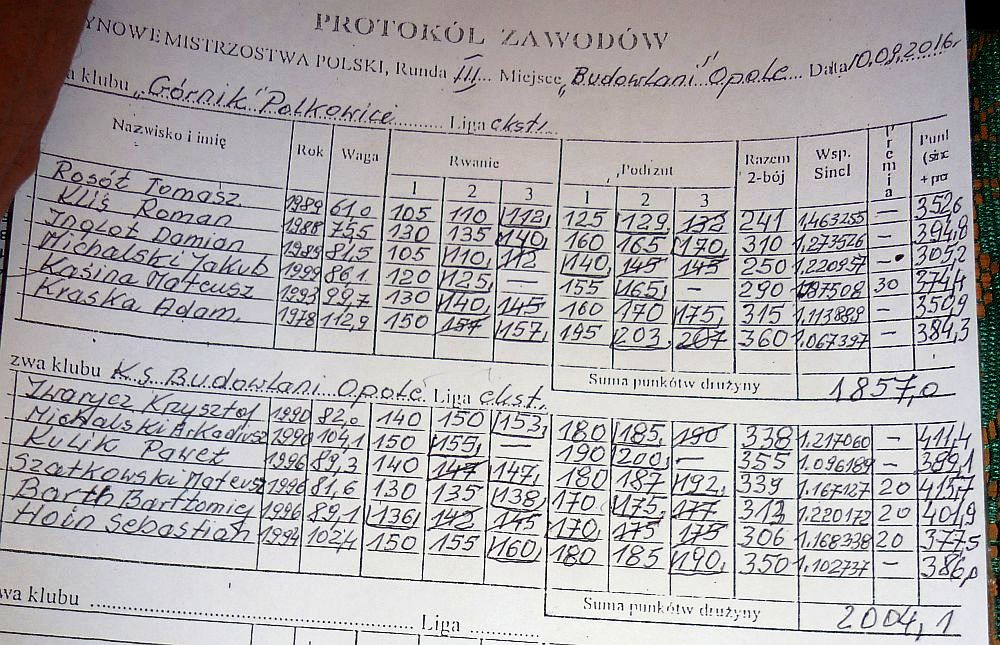 PROTOKÓŁ ZAWODÓW
YNOWE MISTRZOSTWA POLSKI, Runda III... Miejsce „Budowlani" Opole... Data 10.09.2016r
a klubu „Górnik" Polkowice .......... Liga ekst.
Nazwisko i imię Rok Waga Rwanie Podrzut Razem 2-bój Wsp. Sincl Premia Punl (sinc + pre
1 2 3 1 2 3
Rosół Tomasz 1989 61,0 105 110 112 125 129 132 241 1,463255 — 352,6
Kliś Roman 1988 75,5 130 135 140 160 165 170 310 1,273526 — 394,8
Damian 1989 81,5 105 110 112 140 145 145 250 1,220957 — 305,2
Michalski Jakub 1999 86,1 120 125 — 155 165 — 290 187508 30 374,4
Kasina Mateusz 1993 99,7 130 140 145 160 170 175 315 1,113889 — 350,9
Kraska Adam 1978 112,9 150 157 157 195 203 207 360 1,067397 — 384,3
Suma punktów drużyny 1857,0
zwa klubu KS. Budowlani Opole Liga ekst.
Krzysztof 1990 82,0 140 150 153 180 185 190 338 1.217060 — 411,4
Michalski Arkadiusz 1990 104,1 150 155 — 190 200 — 355 1.096189 — 389,1
Kulik Paweł 1996 89,3 140 147 147 180 187 192 339 1.167127 20 415,7
Szatkowski Mateusz 1996 81,6 130 135 138 170 175 177 313 1.220172 20 401,9
Barth Bartłomiej 1996 89,1 136 142 145 170 175 175 306 1.168338 20 377,5
Hoin Sebastian 1994 102,4 150 155 160 180 185 190 350 1.102737 — 386,0
Suma punktów drużyny 2004,1
wa klubu .......... Liga ..........